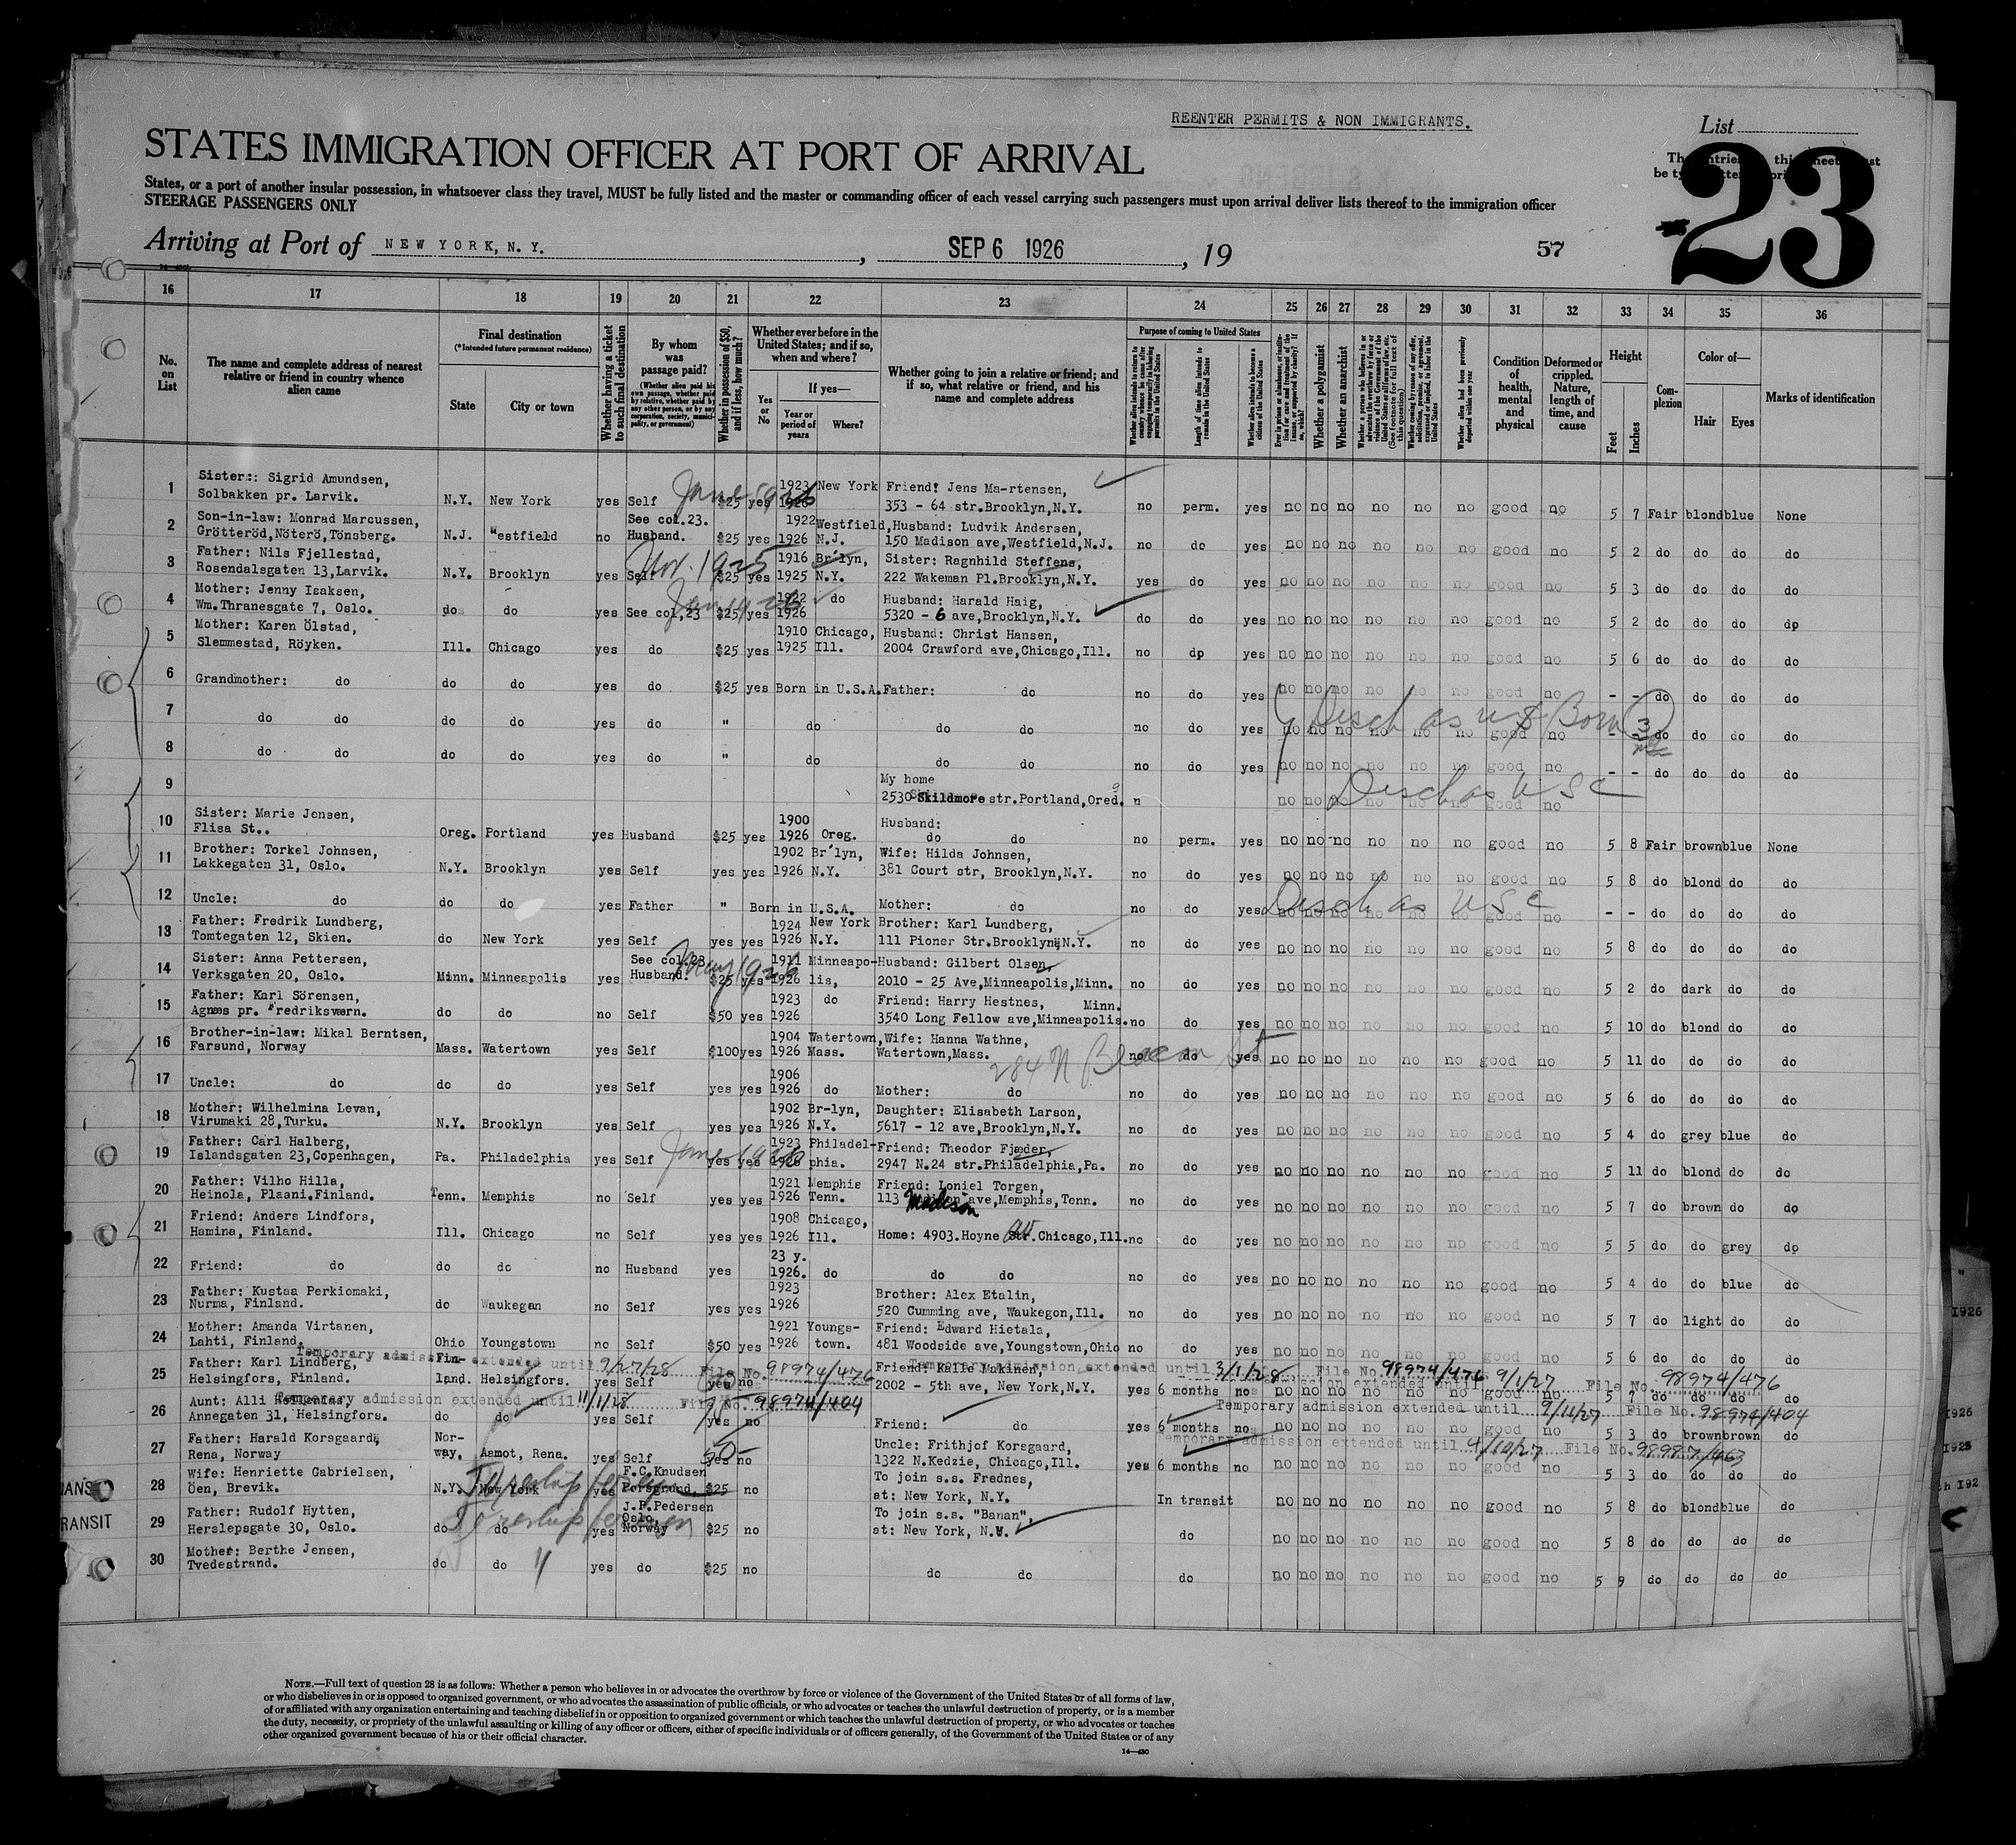 REENTER PERMITS & NON IMMIGRANTS.
List
STATES IMMIGRATION OFFICER AT PORT OF ARRIVAL
23
States, or a port of another insular possession, in whatsoever class they travel, MUST be fully listed and the master or commanding officer of each vessel carrying such passengers must upon arrival deliver lists thereof to the immigration officer
STEERAGE PASSENGERS ONLY
Arriving at Port of NEW YORK, N. Y. , SEP 6 1926 , 19 57
16 17 18 19 20 21 22 23 24 25 26 27 28 29 30 31 32 33 34 35 36
No. on List
The name and complete address of nearest relative or friend in country whence alien came
Final destination
(*Intended future permanent residence)
State City or town
Whether having a ticket to such final destination
By whom was passage paid?
(Whether alien paid his own passage, whether paid by relative, whether paid by any other person, or by any corporation, society, municipality, or government)
Whether in possession of $50, and if less, how much?
Whether ever before in the United States; and if so, when and where?
Yes or No
If yes—
Year or period of years Where?
Whether going to join a relative or friend; and if so, what relative or friend, and his name and complete address
Purpose of coming to United States
Length of time alien intends to remain in the United States
Whether alien intends to become a citizen of the United States
Whether a polygamist
Whether an anarchist
Condition of health, mental and physical
Deformed or crippled. Nature, length of time, and cause
Height
Feet Inches
Complexion
Color of—
Hair Eyes
Marks of identification
1 Sister: Sigrid Amundsen, 1923 New York Friend: Jens Ma-rtensen,
Solbakken pr. Larvik. N.Y. New York yes Self $25 yes 1926 353 - 64 str.Brooklyn,N.Y. no perm. yes no no no no no no good no 5 7 Fair blond blue None
June 1926
2 Son-in-law: Monrad Marcussen, See col.23. 1922 Westfield, Husband: Ludvik Andersen,
Grötteröd,Nöterö,Tönsberg. N.J. "estfield no Husband. $25 yes 1926 N.J. 150 Madison ave,Westfield,N.J. no do yes no no no no no no good no 5 2 do do do do
3 Father: Nils Fjellestad, 1916 Br'lyn, Sister: Ragnhild Steffens,
Rosendalsgaten 13,Larvik. N.Y. Brooklyn yes Self $25 yes 1925 N.Y. 222 Wakeman Pl.Brooklyn,N.Y. yes do yes no no no no no no good no 5 3 do do do do
Nov. 1925
4 Mother: Jenny Isaksen, 1922 do Husband: Harald Haig,
Wm.Thranesgate 7, Oslo. do do yes See col,23 $25 yes 1926 5320 - 6 ave,Brooklyn,N.Y. do do yes no no no no no no good no 5 2 do do do do
Jan 1926
5 Mother: Karen Ölstad, 1910 Chicago, Husband: Christ Hansen,
Slemmestad, Röyken. Ill. Chicago yes do $25 yes 1925 Ill. 2004 Crawford ave,Chicago,Ill. no do yes no no no no no no good no 5 6 do do do do
6 Grandmother: do do do yes do $25 yes Born in U.S.A. Father: do no do yes no no no no no no good no - - do do do do
7 do do do do yes do " do do do no do yes no no no no no no good no - - do do do do
Disch as US Born 3
8 do do do do yes do " do do do no do yes no no no no no no good no - - do do do do
9 My home
2530 Skildmore str.Portland,Oreg. no no no no no no good no
Disch as U S C
10 Sister: Marie Jensen, 1900 Husband:
Flisa St.. Oreg. Portland yes Husband $25 yes 1926 Oreg. do do no perm. yes no no no no no no good no 5 8 Fair brown blue None
11 Brother: Torkel Johnsen, 1902 Br'lyn, Wife: Hilda Johnsen,
Lakkegaten 31, Oslo. N.Y. Brooklyn yes Self yes yes 1926 N.Y. 381 Court str, Brooklyn,N.Y. no do yes no no no no no no good no 5 8 do blond do do
12 Uncle: do do do yes Father " Born in U.S.A. Mother: do no do yes no no no no no no good no - - do do do do
Disch as U S C
13 Father: Fredrik Lundberg, 1924 New York Brother: Karl Lundberg,
Tomtegaten 12, Skien. do New York yes Self yes yes 1926 N.Y. 111 Pioner Str.Brooklyn,N.Y. no do yes no no no no no no good no 5 8 do do do do
14 Sister: Anna Pettersen, See col.23 1911 Minneapo- Husband: Gilbert Olsen,
Verksgaten 20, Oslo. Minn. Minneapolis yes Husband. $25 yes 1926 lis, 2010 - 25 Ave,Minneapolis,Minn. no do yes no no no no no no good no 5 2 do dark do do
May 1926
15 Father: Karl Sörensen, 1923 do Friend: Harry Hestnes, Minn.
Agnæs pr. Fredriksværn. do do no Self $50 yes 1926 3540 Long Fellow ave,Minneapolis. no do yes no no no no no no good no 5 10 do blond do do
16 Brother-in-law: Mikal Berntsen, 1904 Watertown, Wife: Hanna Wathne,
Farsund, Norway Mass. Watertown yes Self $100 yes 1926 Mass. Watertown,Mass. no do yes no no no no no no good no 5 11 do do do do
284 N Beacon St
17 Uncle: do do do yes Self yes yes 1906 1926 do Mother: do no do yes no no no no no no good no 5 6 do do do do
18 Mother: Wilhelmina Levan, 1902 Br-lyn, Daughter: Elisabeth Larson,
Virumaki 28,Turku. N.Y. Brooklyn yes Self yes yes 1926 N.Y. 5617 - 12 ave,Brooklyn,N.Y. no do yes no no no no no no good no 5 4 do grey blue do
19 Father: Carl Halberg, 1923 Philadel- Friend: Theodor Fjæder,
Islandsgaten 23,Copenhagen, Pa. Philadelphia yes Self yes yes 1926 phia. 2947 N.24 str.Philadelphia,Pa. no do yes no no no no no no good no 5 11 do blond do do
June 1926
20 Father: Vilho Hilla, 1921 Memphis Friend: Loniel Torgen,
Heinola, Plaani.Finland. Tenn. Memphis no Self yes yes 1926 Tenn. 113 Madison ave,Memphis,Tenn. no do yes no no no no no no good no 5 7 do brown do do
21 Friend: Anders Lindfors, 1908 Chicago,
Hamina, Finland. Ill. Chicago no Self yes yes 1926 Ill. Home: 4903.Hoyne Str.Chicago,Ill. no do yes no no no no no no good no 5 5 do do grey do
av
22 Friend: do do do no Husband yes 23 y. 1926. do do do no do yes no no no no no no good no 5 4 do do blue do
23 Father: Kustaa Perkiomaki, 1923 Brother: Alex Etalin,
Nurma, Finland. do Waukegan no Self yes yes 1926 520 Cumming ave, Waukegon,Ill. no do yes no no no no no no good no 5 7 do light do do
24 Mother: Amanda Virtanen, 1921 Youngs- Friend: Edward Hietala,
Lahti, Finland. Ohio Youngstown no Self $50 yes 1926 town. 481 Woodside ave,Youngstown,Ohio no do yes no no no no no no good no 5 6 do do do do
Temporary admission extended until 9/27/28 File No. 98974/476
Temporary admission extended until 3/1/28 File No. 98974/476
admission extended until 9/1/27 File No. 98974/476
25 Father: Karl Lindberg, Fin- Friend: Kalle Makinen,
Helsingfors, Finland. land. Helsingfors. yes Self yes no 2002 - 5th ave, New York,N.Y. yes 6 months no no no no no no no good no 5 7 do do do do
Temporary admission extended until 11/1/28 File No. 98974/404
Temporary admission extended until 9/11/27 File No. 98974/404
26 Aunt: Alli
Annegaten 31, Helsingfors. do do yes Self yes no Friend: do yes 6 months no no no no no no no good no 5 3 do brown brown do
Temporary admission extended until 4/10/27 File No. 98987/463
27 Father: Harald Korsgaard, Nor- 50- Uncle: Frithjof Korsgaard,
Rena, Norway way, Aamot, Rena. yes Self yes no 1322 N.Kedzie, Chicago,Ill. yes 6 months no no no no no no no good no 5 3 do do do do
28 Wife: Henriette Gabrielsen, F.C.Knudsen To join s.s. Frednes,
Öen, Brevik. N.Y. New York yes Porsgrund, $25 no at: New York, N.Y. In transit no no no no no no good no 5 8 do blond blue do
29 Father: Rudolf Hytten, J.P.Pedersen To join s.s. "Banan",
Herslepsgate 30, Oslo. do do yes Oslo, Norway $25 no at: New York, N.Y. do no no no no no no good no 5 8 do do do do
30 Mother: Berthe Jensen,
Tvedestrand. do do yes do $25 no do do do no no no no no no good no 5 9 do do do do
RANSIT
NOTE.—Full text of question 28 is as follows: Whether a person who believes in or advocates the overthrow by force or violence of the Government of the United States or of all forms of law,
or who disbelieves in or is opposed to organized government, or who advocates the assassination of public officials, or who advocates or teaches the unlawful destruction of property, or is a member
of or affiliated with any organization entertaining and teaching disbelief in or opposition to organized government or which teaches the unlawful destruction of property, or who advocates or teaches
the duty, necessity, or propriety of the unlawful assaulting or killing of any officer or officers, either of specific individuals or of officers generally, of the Government of the United States or of any
other organized government because of his or their official character.
14—430